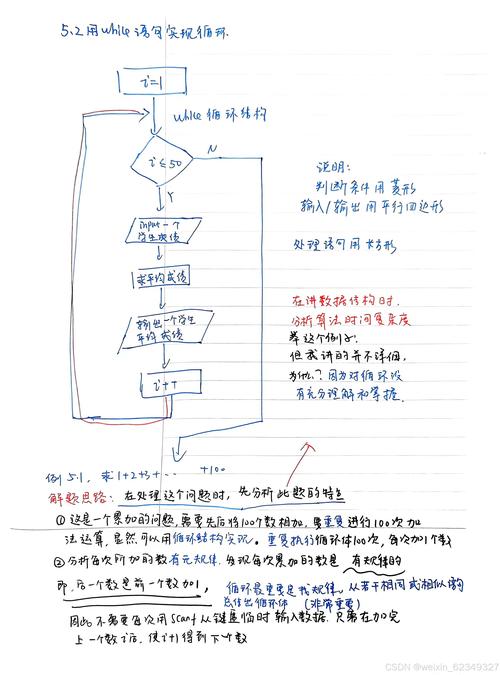 5.2 用while语句实现循环.
i=1
while 循环结构
i≤50
N
Y
input一个
学生成绩
求平均成绩
输出一个学生
平均成绩
i++
说明:
判断条件用菱形
输入/输出用平行四边形
处理语句用长方形
在讲数据结构时.
分析算法时间复杂度
举这个例子.
但我讲的并不详细.
为什么?因为对循环没
有充分理解和掌握.
例5.1. 求1+2+3+...+100
解题思路: 在处理这个问题时, 先分析此题的特点
① 这是一个累加的问题,需要先后将100个数相加,需重复进行100次加
法运算,显然可以用循环结构实现. 重复执行循环体100次,每次加1个数
② 分析每次所加的数有无规律. 发现每次累加的数是 有规律的
即,后一个数是前一个数加1, 循环最重要是找规律. 从若干相同或相似的
总结出循环体 (非常重要)
因此不需要每次用scanf从键盘临时输入数据. 只需在加完
上一个数i后, 使i+1得到下个数
CSDN @weixin_62349327